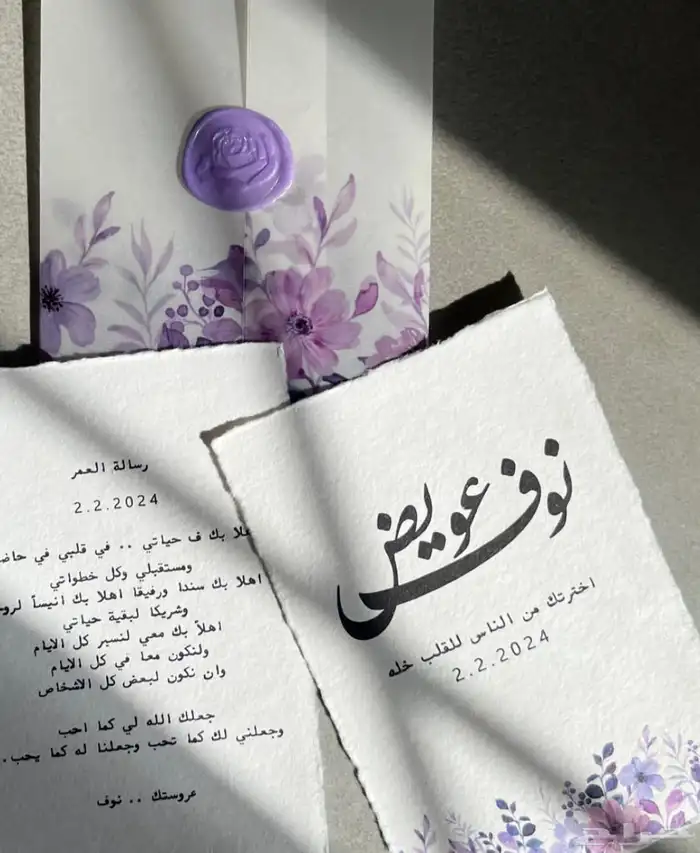 نوف عويض
اخترتك من الناس للقلب خله
2.2.2024
رسالة العمر
2.2.2024
اهلا بك ف حياتي .. في قلبي في
ومستقبلي وكل خطواتي
اهلا بك سندا ورفيقا اهلا بك انيساً
وشريكا لبقية حياتي
اهلاً بك معي لنسير كل الايام
ولنكون معا في كل الايام
وان نكون لبعض كل الاشخاص
جعلك الله لي كما احب
وجعلني لك كما تحب وجعلنا له كما يحب.
عروستك .. نوف